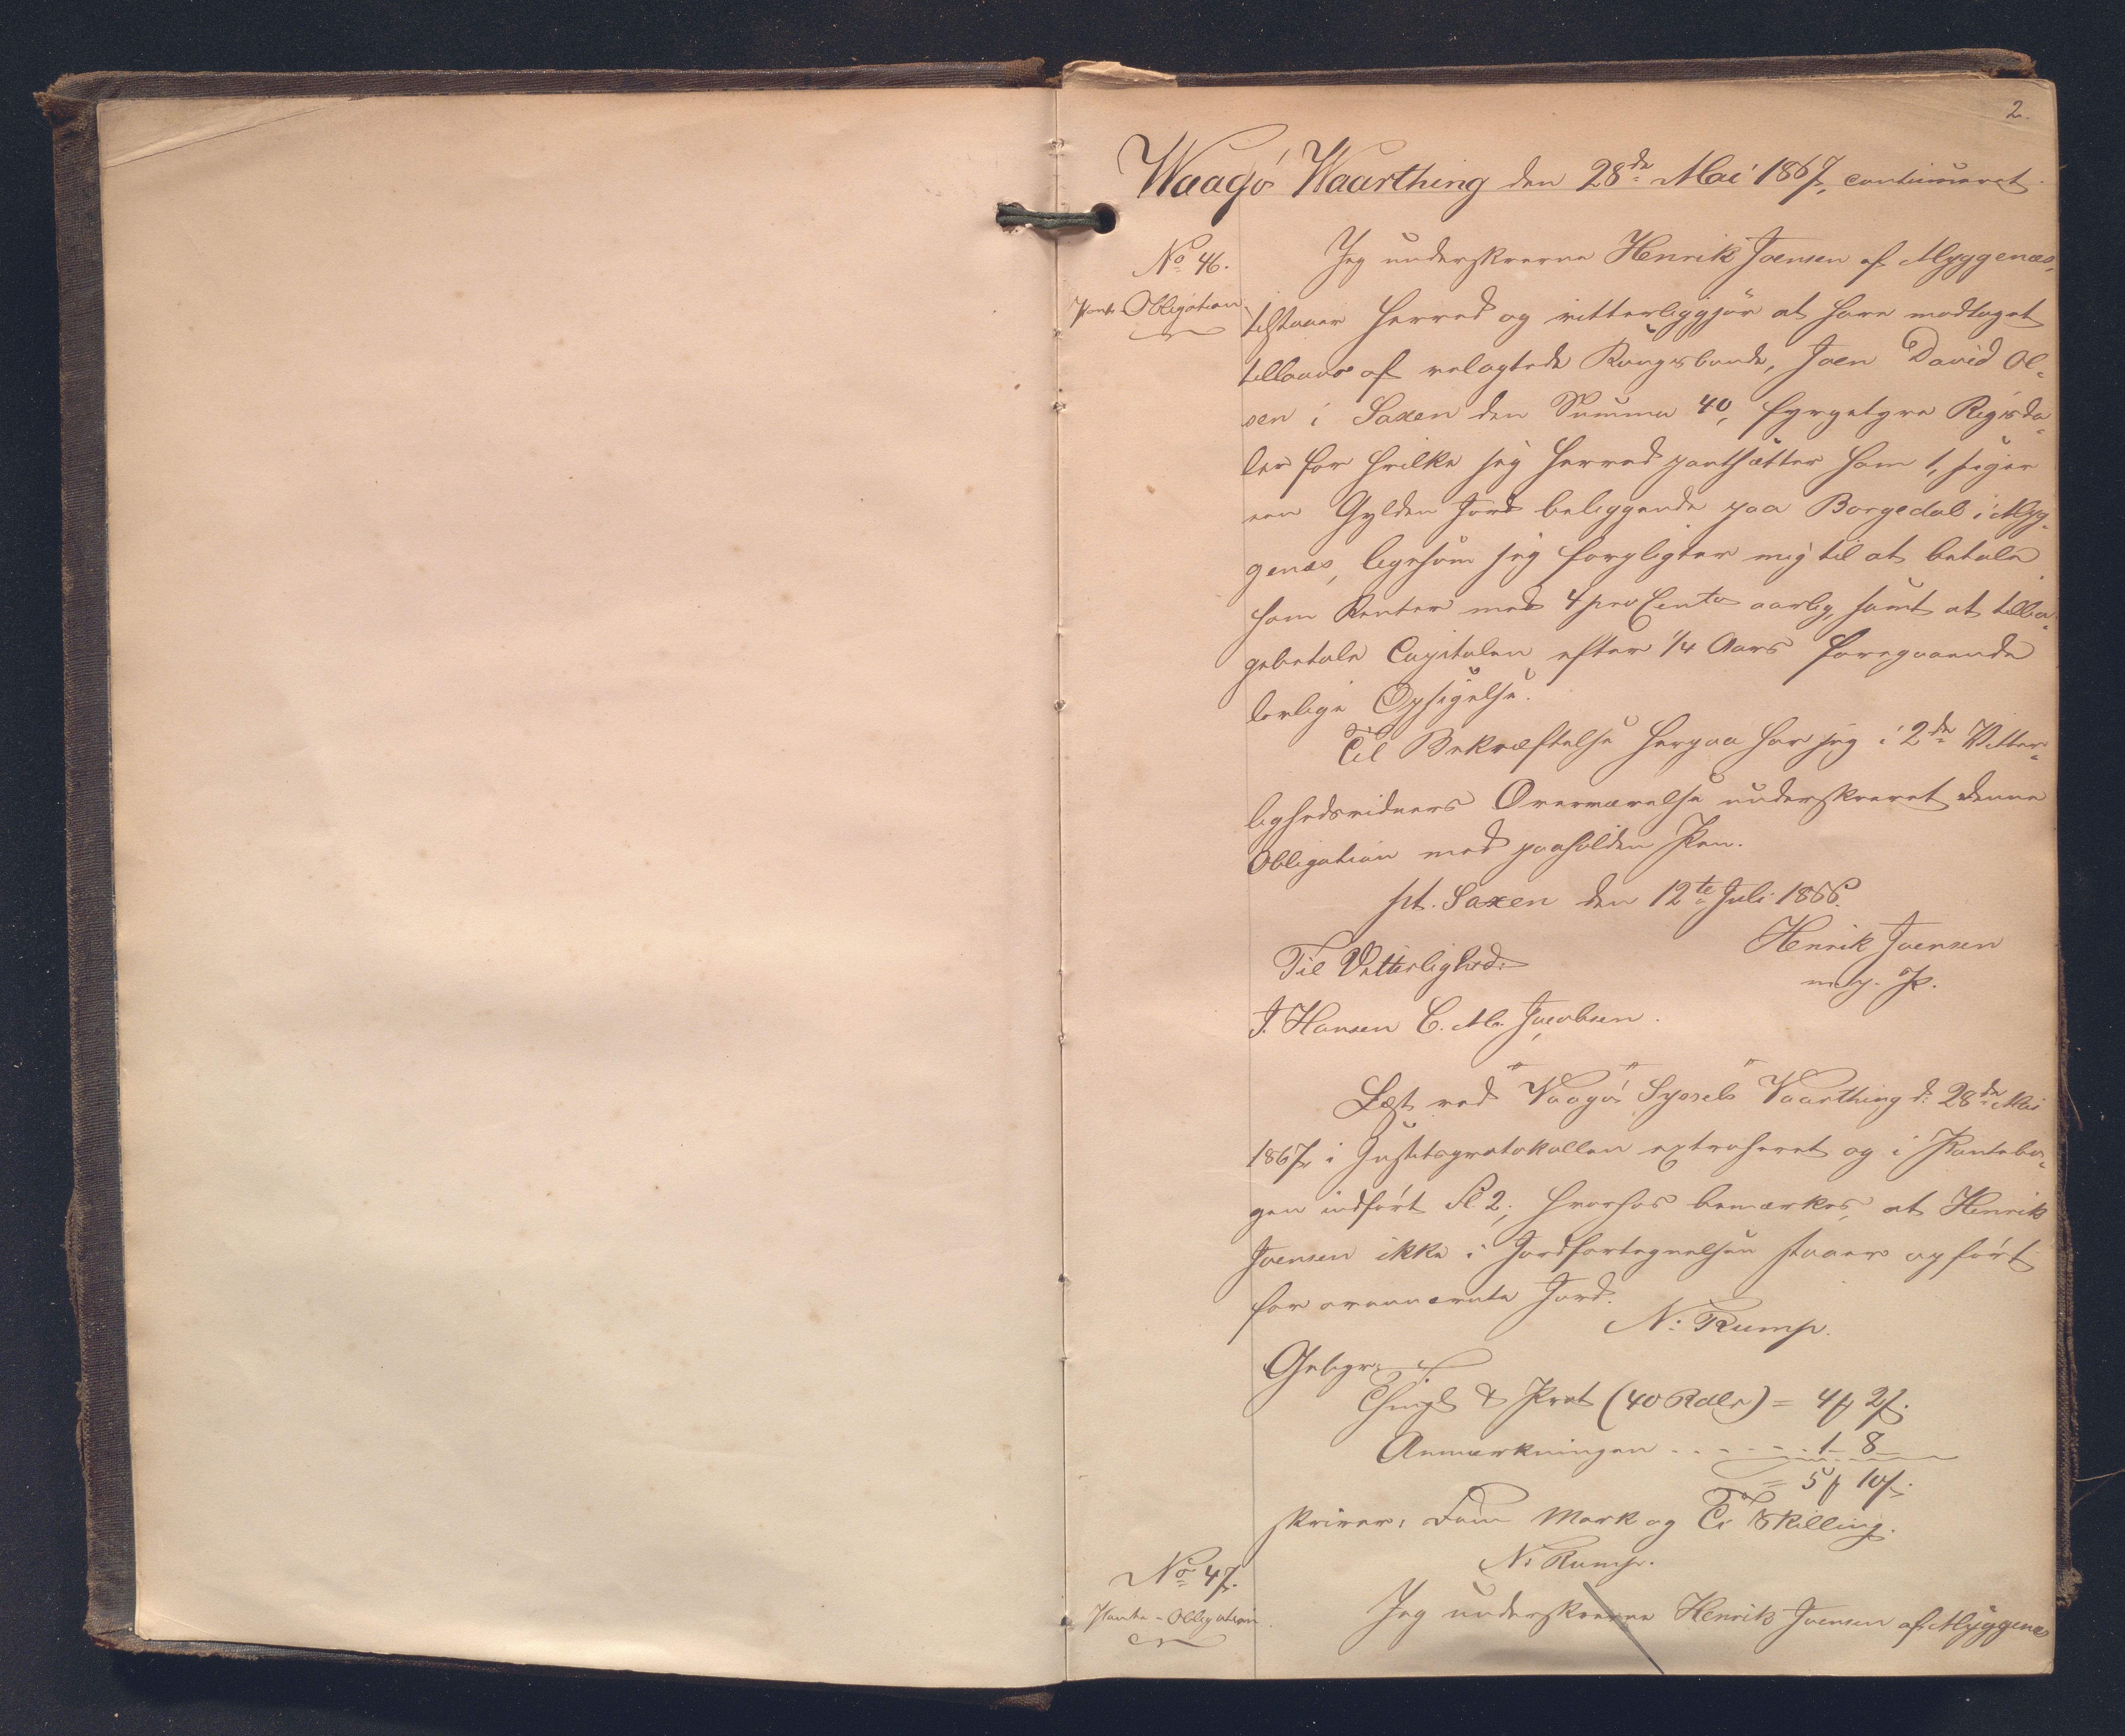 2.
Waagø Waarthing den 28de Mai 1867, continueret.
No 46.
Pante-Obligation
Jeg underskrevne Henrik Joensen af Myggenæs,
tilstaaer herved og vitterliggjør at have modtaget
tillaans af velagtede Kongsbonde, Joen David Ol-
sen i Saxen den Summa 40, fyrgetyve Rigsda-
ler for hvilke jeg herved pantsætter ham 1, siger
een Gylden Jord beliggende paa Borgedal i Myg-
genæs, ligesom jeg forpligter mig til at betale
ham Renter med 4 pro Cento aarlig, samt at tilba-
gebetale Capitalen efter 1/4 Aars foregaaende
lovlige Opsigelse.
Til Bekræftelse herpaa har jeg i 2de Vitter-
lighedsvidners Overværelse underskrevet denne
Obligation med paaholden Pen.
pt. Saxen den 12te Juli 1866.
Henrik Joensen
m. p. P.
Til Vitterlighed:
J. Hansen C. M. Jacobsen.
Læst ved Vaagø Syssels Vaarthing d. 28de Mai
1867, i Justitsprotokollen extraheret og i Pantebo-
gen indført Fl. 2; hvorhos bemærkes, at Henrik
Joensen ikke i Jordfortegnelsen staaer opført
for ovennævnte Jord.
N. Rump.
Gebyr:
Thingl & Prot (40 Rdlr) = 4 ℳ 2 ß.
Anmærkningen . . . . . . 1 - 8 -
= 5 ℳ 10 ß.
skriver: Fem Mark og Ti Skilling.
N. Rump.
No 47.
Pante-Obligation.
Jeg underskrevne Henrik Joensen af Myggenæs